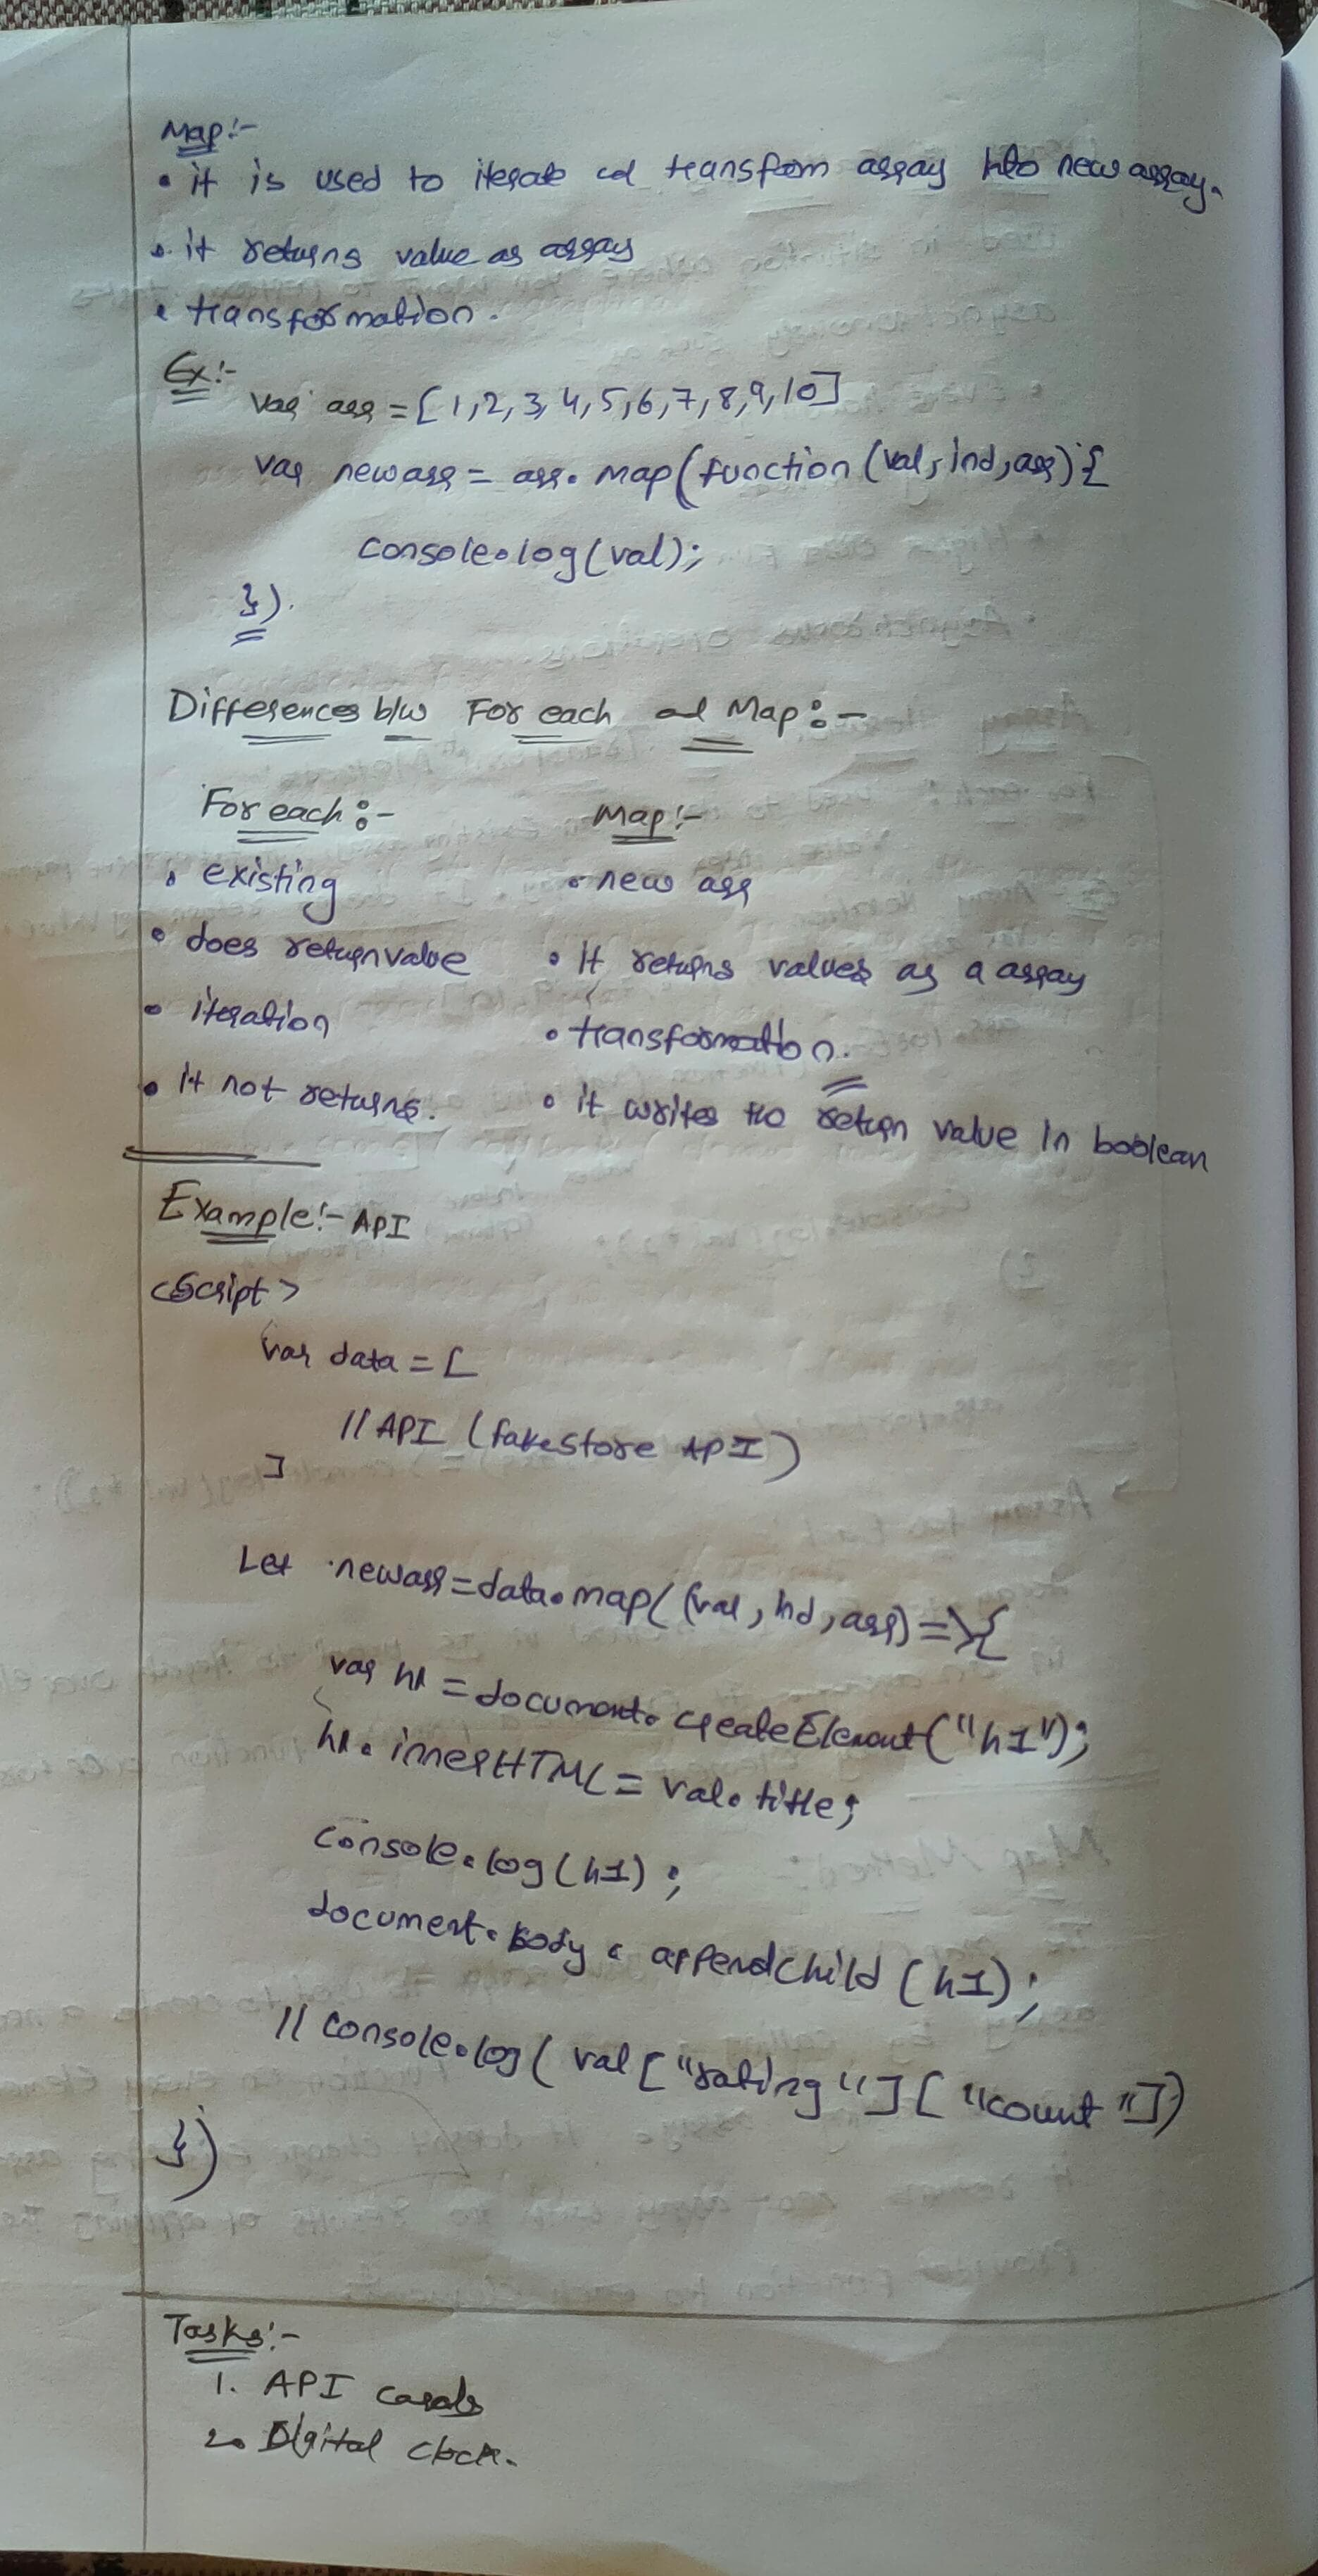 Map:-
• it is used to iterate ad transform array into new array.
• it returns value as array
• transformation.
Ex:-
var arr = [1,2,3,4,5,6,7,8,9,10]
var newarr = arr. map(function (val, ind, arr) {
console.log(val);
}).
Differences b/w For each ad Map:-
For each:- Map:-
• existing • new arr
• does return value • It returns values as a array
• iteration • transformation.
• it not returns. • it writes the return value in boolean
Example:- API
<Script>
var data = [
// API (fakestore API)
]
Let newarr = data.map( (val, ind, arr) => {
var h1 = document. createElement("h1");
h1. innerHTML = val. title;
console.log(h1);
document. body. appendChild (h1);
// console.log( val ["rating"] [ "count"])
})
Tasks:-
1. API
2. Digital clock.